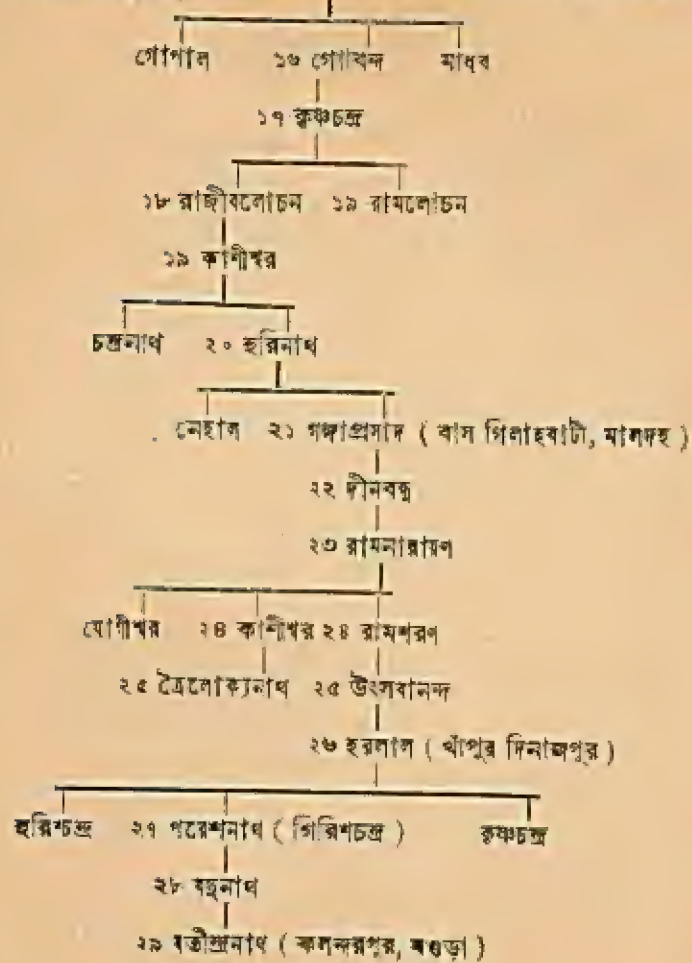 গোপাল ১৬ গোবিন্দ মাধব
১৭ কৃষ্ণচন্দ্র
১৮ রাজীবলোচন ১৯ রামলোচন
১৯ কাশীশ্বর
চন্দ্রনাথ ২০ হরিনাথ
নেহাল ২১ গঙ্গাপ্রসাদ ( বাস গিলাহবাটী, মালদহ )
২২ দীনবন্ধু
২৩ রামনারায়ণ
যোগীশ্বর ২৪ কাশীশ্বর ২৪ রামশরণ
২৫ ত্রৈলোক্যনাথ ২৫ উৎসবানন্দ
২৬ হরলাল ( খাঁপুর দিনাজপুর )
হরিশচন্দ্র ২৭ পরেশনাথ ( গিরিশচন্দ্র ) কৃষ্ণচন্দ্র
২৮ যদুনাথ
২৯ যতীন্দ্রনাথ ( কলন্দরপুর, বগুড়া )